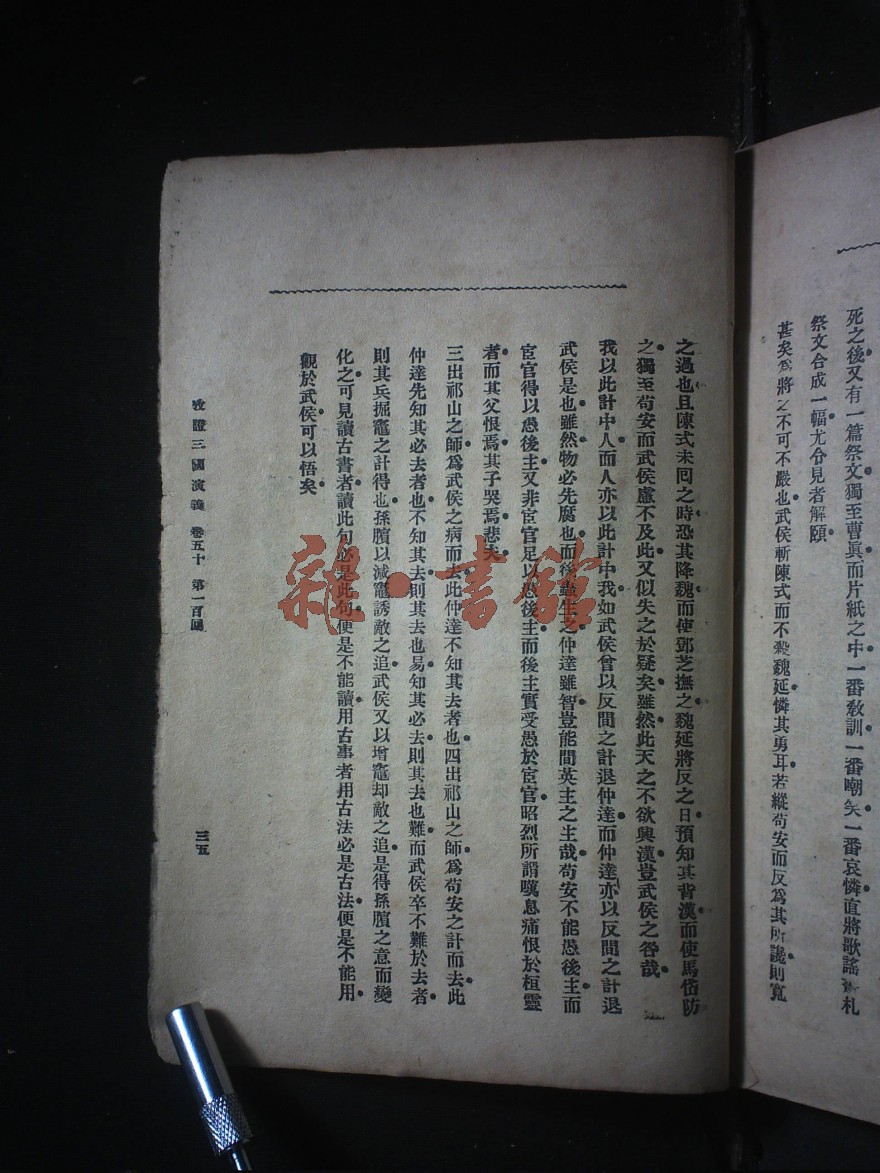 死之後又有一篇祭文獨至曹眞而片紙之中一番敎訓一番嘲笑一番哀憐直將歌謠書札
祭文合成一幅尤令見者解頤
甚矣爲將之不可不嚴也武侯斬陳式而不殺魏延憐其勇耳若縱苟安而反爲其所讒則寬
之過也且陳式未囘之時恐其降魏而使鄧芝撫之魏延將反之日預知其背漢而使馬岱防
之獨至苟安而武侯慮不及此又似失之於疑矣雖然此天之不欲興漢豈武侯之咎哉
我以此計中人而人亦以此計中我如武侯曾以反間之計退仲達而仲達亦以反間之計退
武侯是也雖然物必先腐也而後蟲生之仲達雖智豈能間英主之主哉苟安不能愚後主而
宦官得以愚後主又非宦官足以愚後主而後主實受愚於宦官昭烈所謂嘆息痛恨於桓靈
者而其父恨焉其子哭焉悲夫
三出祁山之師爲武侯之病而去此仲達不知其去者也四出祁山之師爲苟安之計而去此
仲達先知其必去者也不知其去則其去也易知其必去則其去也難而武侯卒不難於去者
則其兵掘竈之計得也孫臏以減竈誘敵之追武侯又以增竈却敵之追是得孫臏之意而變
化之可見讀古書者讀此句必是此句便是不能讀用古事者用古法必是古法便是不能用
觀於武侯可以悟矣
攷證三國演義 卷五十 第一百囘
三五
雜·書館